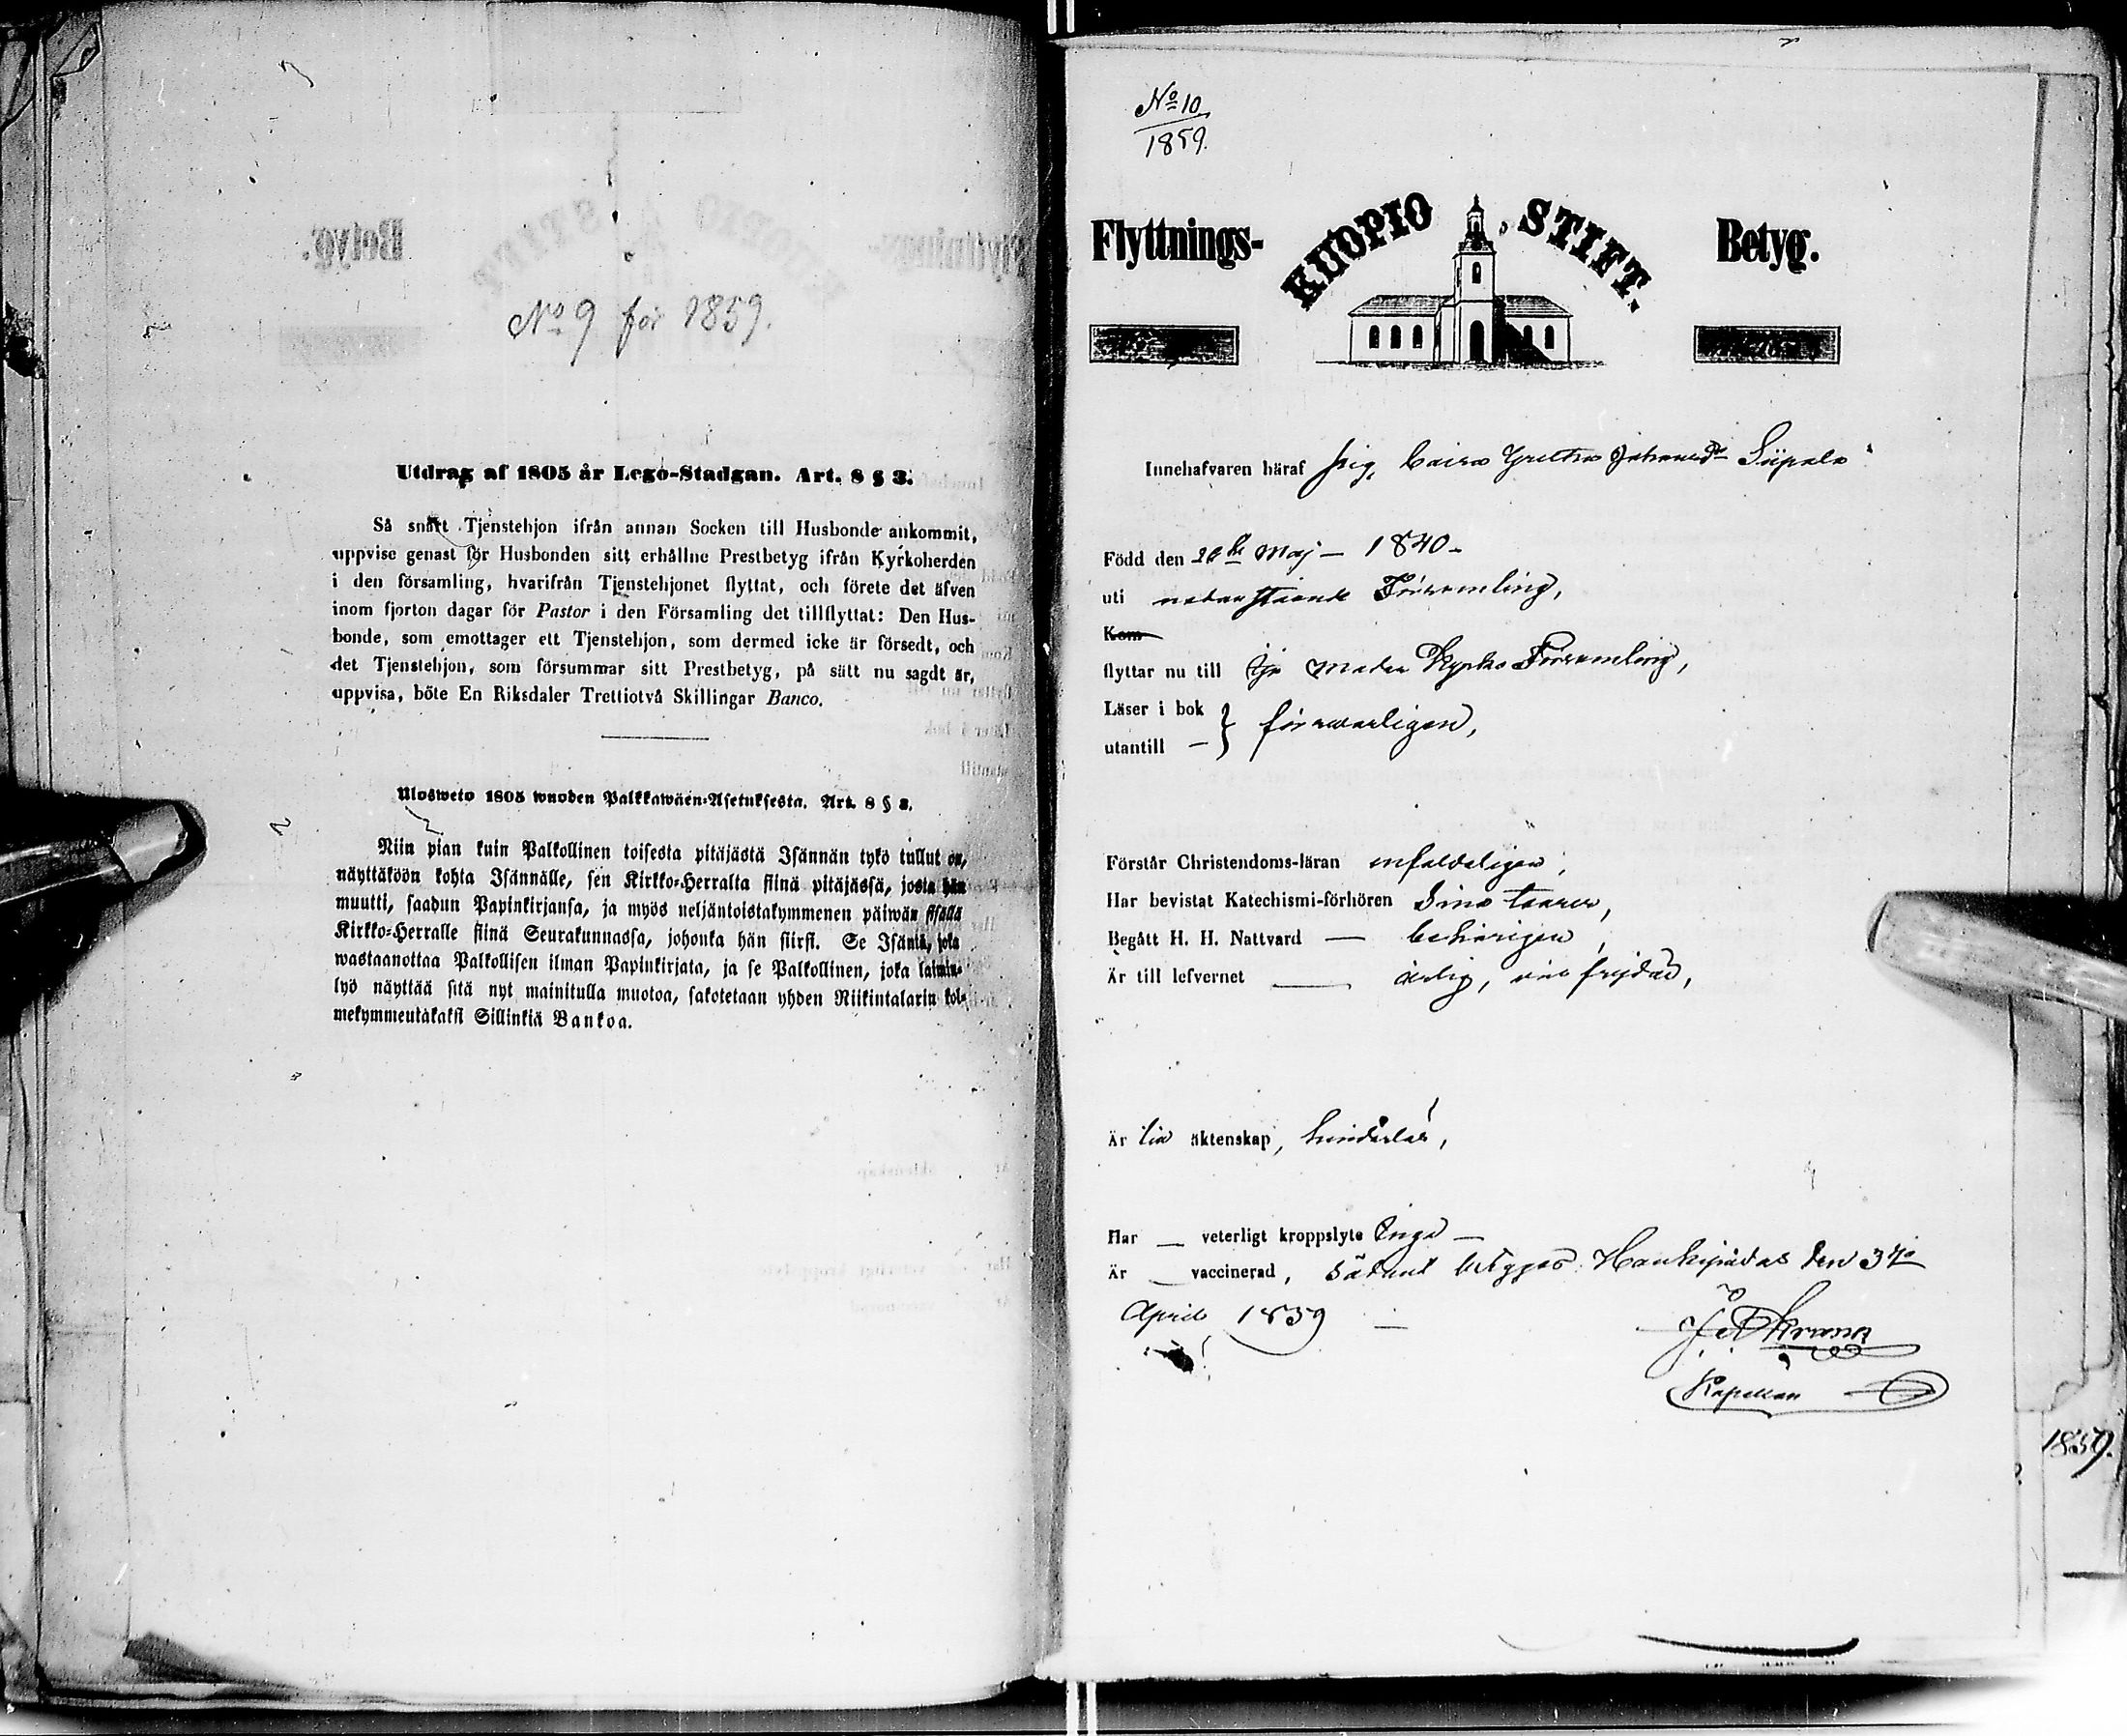 No 9 för 1859.
Utdrag af 1805 år Lego-Stadgan. Art. 8 § 3.
Så snart Tjenstehjon ifrån annan Socken till Husbonde ankommit,
uppvise genast för Husbonden sitt erhållne Prestbetyg ifrån Kyrkoherden
i den församling, hvarifrån Tjenstehjonet flyttat, och förete det äfven
inom fjorton dagar för Pastor i den Församling det tillflyttat: Den Hus-
bonde, som emottager ett Tjenstehjon, som dermed icke är försedt, och
det Tjenstehjon, som försummar sitt Prestbetyg, på sätt nu sagdt är,
uppvisa, böte En Riksdaler Trettiotvå Skillingar Banco.
Ulosweto 1805 wuoden Palkkawäen-Asetuksesta. Art. 8 § 3.
Niin pian kuin Palkollinen toisesta pitäjästä Isännän tykö tullut on,
näyttäköön kohta Isännälle, sen Kirkko-Herralta siinä pitäjässä, josta hän
muutti, saadun Papinkirjansa, ja myös neljäntoistakymmenen päiwän sisällä
Kirkko-Herralle siinä Seurakunnassa, johonka hän siirsi. Se Isäntä, joka
wastaanottaa Palkollisen ilman Papinkirjata, ja se Palkollinen, joka laimin-
lyö näyttää sitä nyt mainitulla muotoa, sakotetaan yhden Riikintalarin kol-
mekymmentäkaksi Sillinkiä Bankoa.
No 10
1859.
Flyttnings- KUOPIO STIFT. Betyg.
Innehafvaren häraf Pig. Caisa Gretha Johansdr Siipola
Född den Maj — 1840 -
uti nedanstående Församling,
Kom
flyttar nu till Församling,
Läser i bok
utantill — } försvarligen,
Förstår Christendoms-läran enfaldeligen,
Har bevistat Katechismi-förhören sina tourer,
Begått H. H. Nattvard — behörigen,
Är till lefvernet — ärlig, väl frejdad,
Är till äktenskap, hinderlös,
Har — veterligt kroppslyte Inga —
Är — vaccinerad, sådant betygas Haukipudas den
April 1859 —
Kapellan
1859.